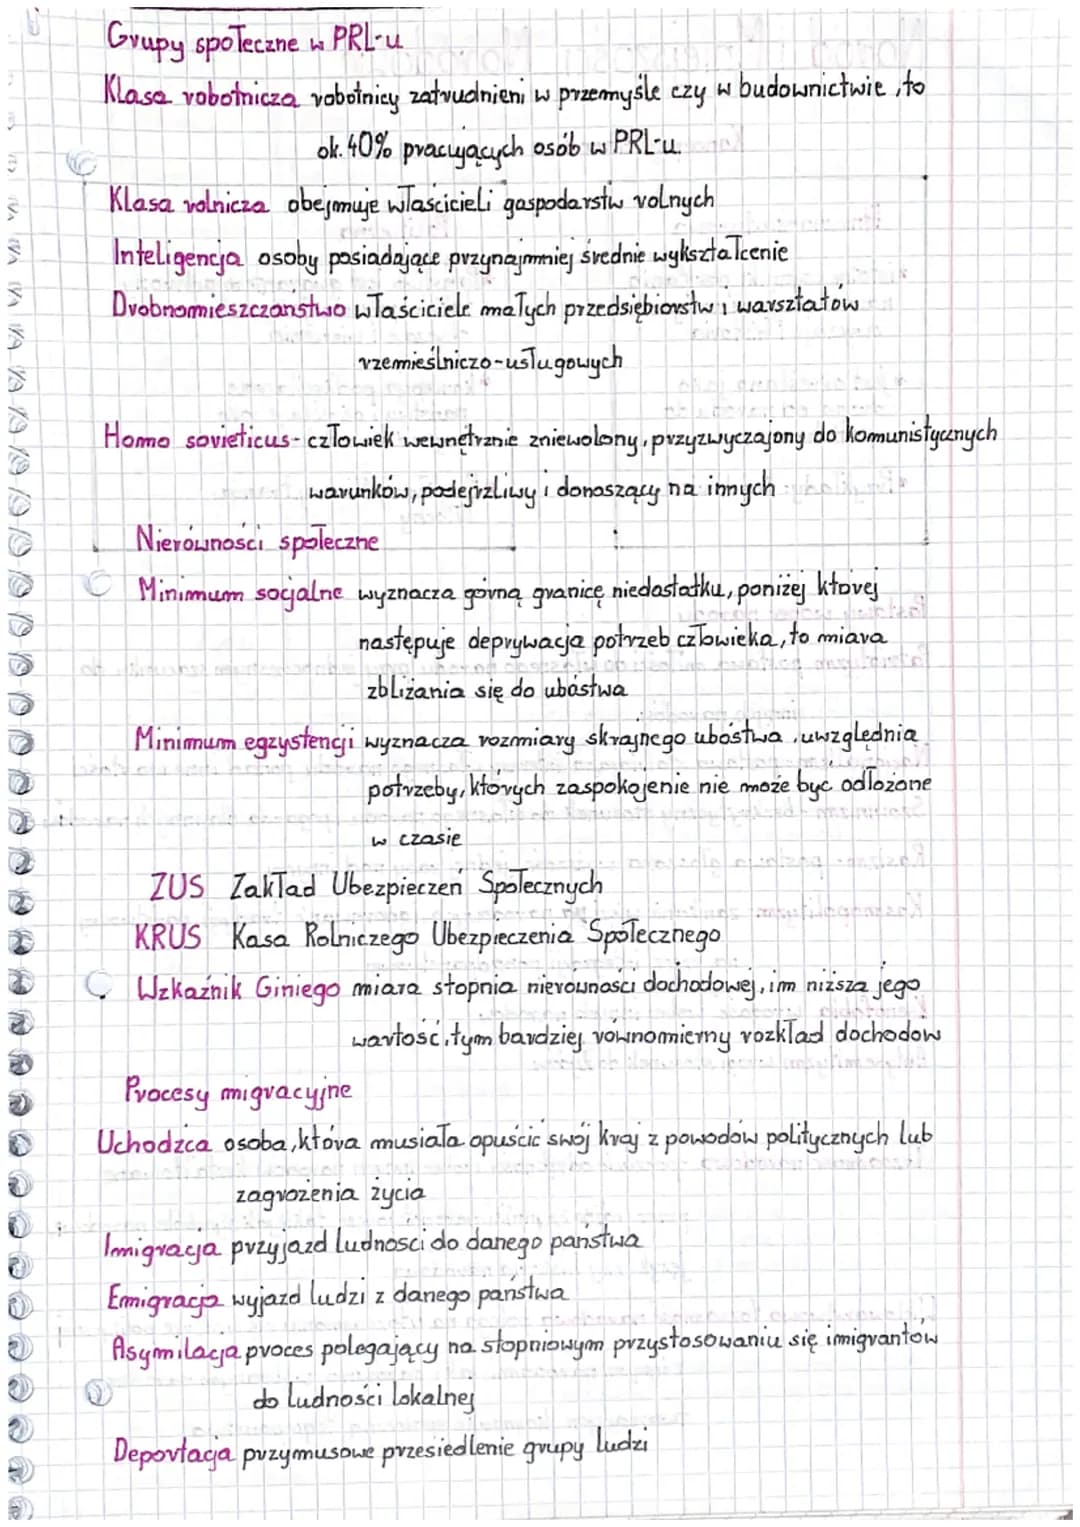 Grupy społeczne w PRL-u
Klasa robotnicza robotnicy zatrudnieni w przemyśle czy w budownictwie, to
ok. 40% pracujących osób w PRL-u.
Klasa rolnicza obejmuje właścicieli gospodarstw rolnych
Inteligencja osoby posiadające przynajmniej średnie wykształcenie
Drobnomieszczaństwo właściciele małych przedsiębiorstw i warsztatów
rzemieślniczo-usługowych
Homo sovieticus- człowiek wewnętrznie zniewolony, przyzwyczajony do komunistycznych
warunków, podejrzliwy i donoszący na innych
Nierówności społeczne
Minimum socjalne wyznacza górną granicę niedostatku, poniżej której
następuje deprywacja potrzeb człowieka, to miara
zbliżania się do ubóstwa
Minimum egzystencji wyznacza rozmiary skrajnego ubóstwa, uwzględnia
potrzeby, których zaspokojenie nie może być odłożone
w czasie
ZUS Zakład Ubezpieczeń Społecznych
KRUS Kasa Rolniczego Ubezpieczenia Społecznego
Wzkaźnik Giniego miara stopnia nierówności dochodowej, im niższa jego
wartość, tym bardziej równomierny rozkład dochodów
Procesy migracyjne
Uchodźca osoba, która musiała opuścić swój kraj z powodów politycznych lub
zagrożenia życia
Imigracja przyjazd ludności do danego państwa
Emigracja wyjazd ludzi z danego państwa
Asymilacja proces polegający na stopniowym przystosowaniu się imigrantów
do ludności lokalnej
Deportacja przymusowe przesiedlenie grupy ludzi